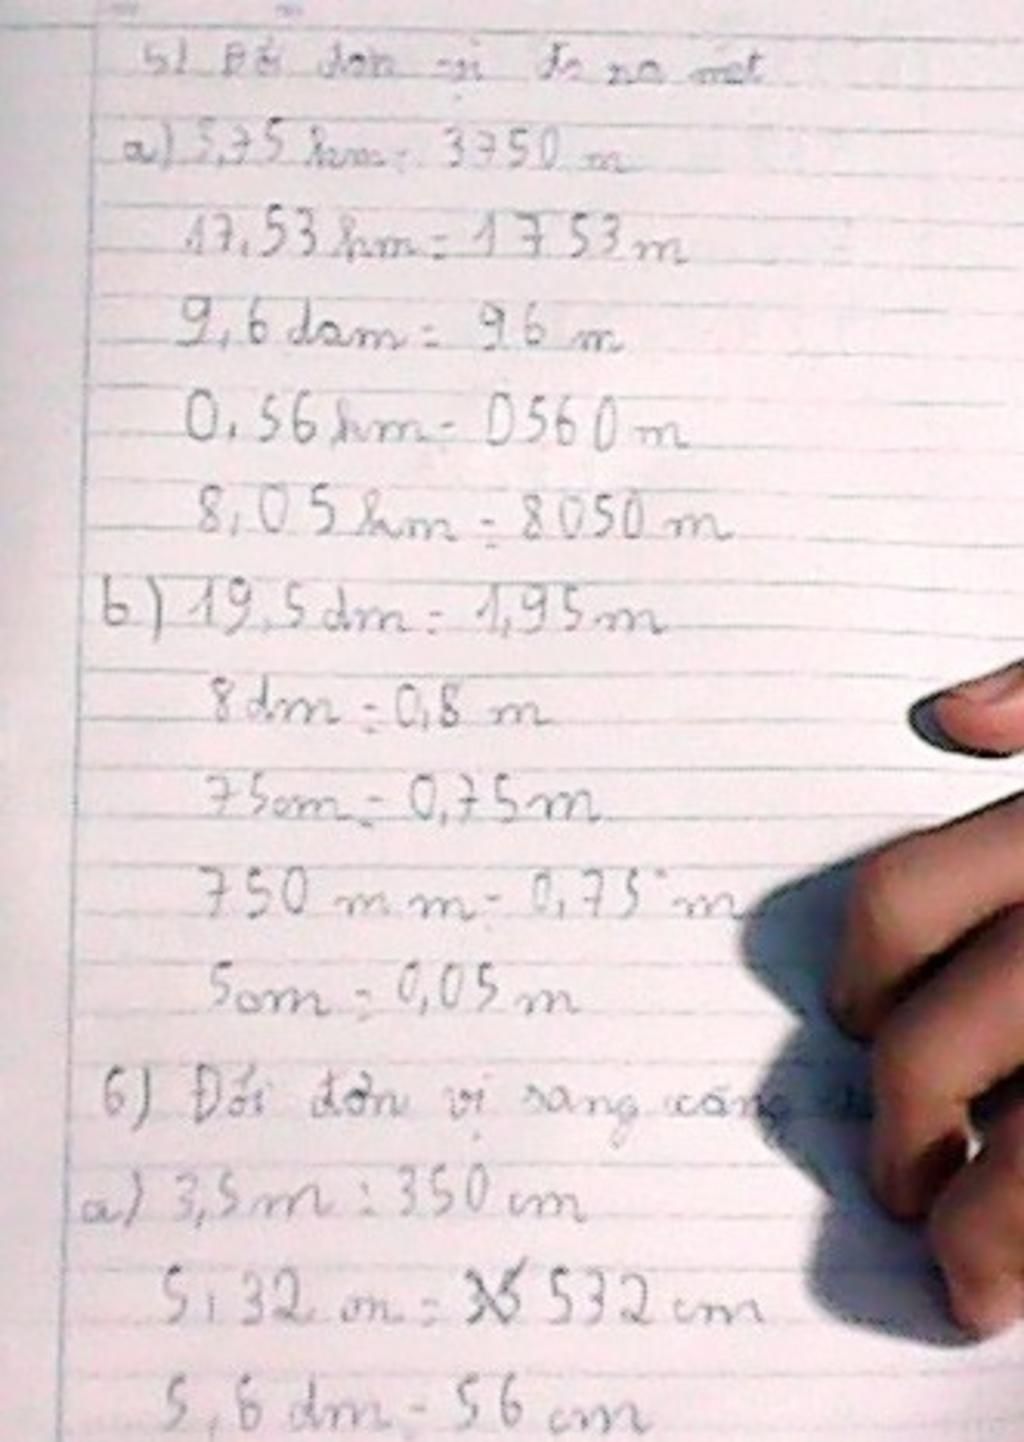 5) Đổi đơn vị đo ra mét
a) 3,75 km = 3750 m
17,53 hm = 1753 m
9,6 dam = 96 m
0,56 km = 0560 m
8,05 km = 8050 m
b) 19,5 dm = 1,95 m
8 dm = 0,8 m
75 cm = 0,75 m
750 mm = 0,75 m
5 cm = 0,05 m
6) Đổi đơn vị sang
a) 3,5 m = 350 cm
5,32 m = 532 cm
5,6 dm = 56 cm